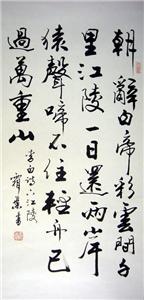 朝辭白帝彩雲間千
里江陵一日還兩岸
猿聲啼不住輕舟已
過萬重山
李白詩下江陵
書